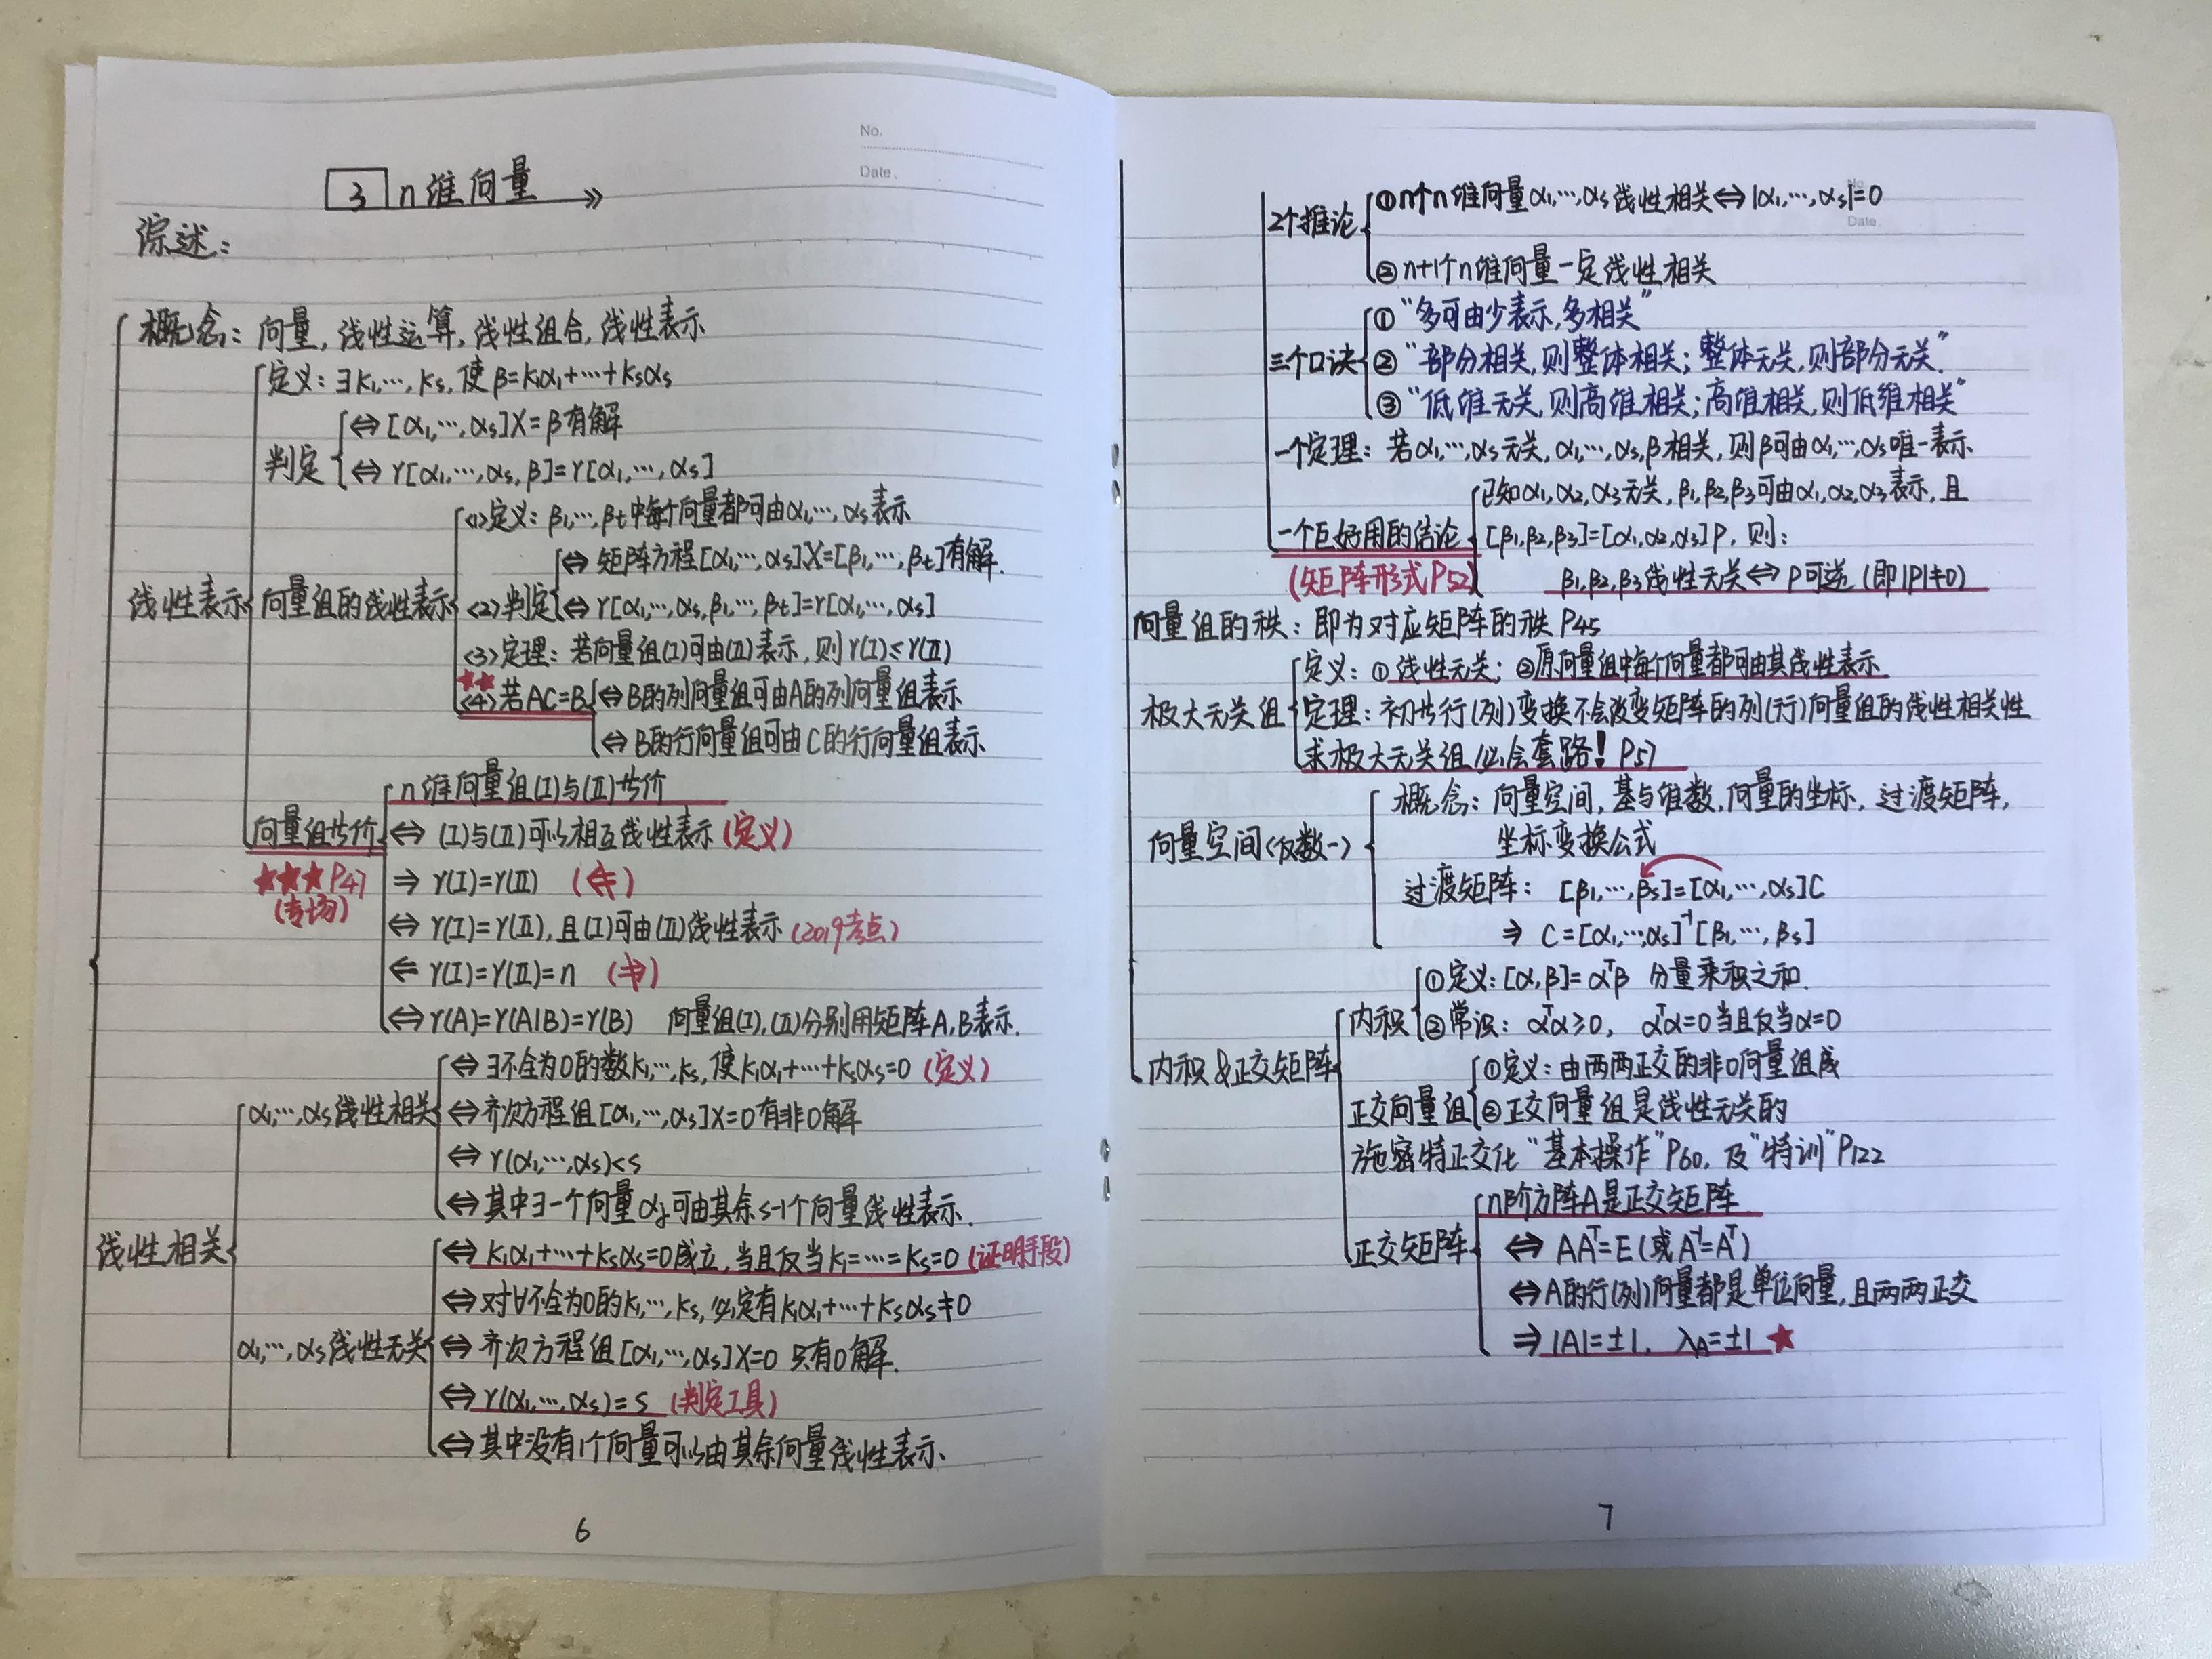 No.
Date.
3 n维向量
综述：
概念：向量，线性运算，线性组合，线性表示
线性表示
定义：∃k₁,…,ks,使β=k₁α₁+…+ksαs
判定
⇔[α₁,…,αs]X=β有解
⇔r[α₁,…,αs,β]=r[α₁,…,αs]
向量组的线性表示
<1>定义：β₁,…,βt中每个向量都可由α₁,…,αs表示
<2>判定
⇔矩阵方程[α₁,…,αs]X=[β₁,…,βt]有解.
⇔r[α₁,…,αs,β₁,…,βt]=r[α₁,…,αs]
<3>定理：若向量组(Ⅰ)可由(Ⅱ)表示,则r(Ⅰ)≤r(Ⅱ)
★★
<4>若AC=B
⇔B的列向量组可由A的列向量组表示
⇔B的行向量组可由C的行向量组表示
向量组等价
★★★P47
(专场)
n维向量组(Ⅰ)与(Ⅱ)等价
⇔(Ⅰ)与(Ⅱ)可以相互线性表示(定义)
⇒r(Ⅰ)=r(Ⅱ) (⇍)
⇔r(Ⅰ)=r(Ⅱ),且(Ⅰ)可由(Ⅱ)线性表示(2019考点)
⇐r(Ⅰ)=r(Ⅱ)=n (⇏)
⇔r(A)=r(A|B)=r(B) 向量组(Ⅰ),(Ⅱ)分别用矩阵A,B表示.
线性相关
α₁,…,αs线性相关
⇔∃不全为0的数k₁,…,ks,使k₁α₁+…+ksαs=0(定义)
⇔齐次方程组[α₁,…,αs]X=0有非0解
⇔r(α₁,…,αs)<s
⇔其中∃一个向量αj可由其余s-1个向量线性表示.
α₁,…,αs线性无关
⇔k₁α₁+…+ksαs=0成立,当且仅当k₁=…=ks=0(证明手段)
⇔对∀不全为0的k₁,…,ks,必定有k₁α₁+…+ksαs≠0
⇔齐次方程组[α₁,…,αs]X=0 只有0解.
⇔r(α₁,…,αs)=s (判定工具)
⇔其中没有1个向量可以由其余向量线性表示.
6
Date.
2个推论
①n个n维向量α₁,…,αs线性相关⇔|α₁,…,αs|=0
②n+1个n维向量一定线性相关
三个口诀
①“多可由少表示,多相关”
②“部分相关,则整体相关;整体无关,则部分无关.”
③“低维无关,则高维相关;高维相关,则低维相关”
一个定理：若α₁,…,αs无关,α₁,…,αs,β相关,则β可由α₁,…,αs唯一表示.
一个巨好用的结论
(矩阵形式P52)
已知α₁,α₂,α₃无关,β₁,β₂,β₃可由α₁,α₂,α₃表示,且
[β₁,β₂,β₃]=[α₁,α₂,α₃]P,则:
β₁,β₂,β₃线性无关⇔P可逆(即|P|≠0)
向量组的秩：即为对应矩阵的秩P45
极大无关组
定义：①线性无关；②原向量组中每个向量都可由其线性表示
定理：初等行(列)变换不会改变矩阵的列(行)向量组的线性相关性
求极大无关组必会套路！P57
向量空间<仅数一>
概念：向量空间,基与维数,向量的坐标,过渡矩阵,
坐标变换公式
过渡矩阵：[β₁,…,βs]=[α₁,…,αs]C
⇒C=[α₁,…,αs]⁻¹[β₁,…,βs]
内积&正交矩阵
内积
①定义:[α,β]=αᵀβ 分量乘积之和.
②常识：αᵀα≥0, αᵀα=0当且仅当α=0
正交向量组
①定义：由两两正交的非0向量组成
②正交向量组是线性无关的
施密特正交化“基本操作”P60,及“特训”P122
正交矩阵
n阶方阵A是正交矩阵
⇔AAᵀ=E(或A⁻¹=Aᵀ)
⇔A的行(列)向量都是单位向量,且两两正交
⇒|A|=±1, λA=±1★
7